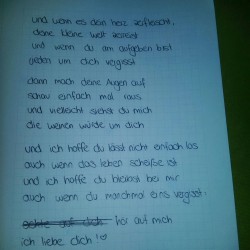 und wenn es dein herz zerfleischt,
deine kleine welt zerreisst
und wenn du am aufgeben bist
jeden um dich vergisst
dann mach deine Augen auf
schau einfach mal raus
und vielleicht siehst du mich
die weinen würde um dich
und ich hoffe du lässt nicht einfach los
auch wenn das leben scheiße ist
und ich hoffe du bleibst bei mir
auch wenn du manchmal eins vergisst:
hör auf mich
ich liebe dich!